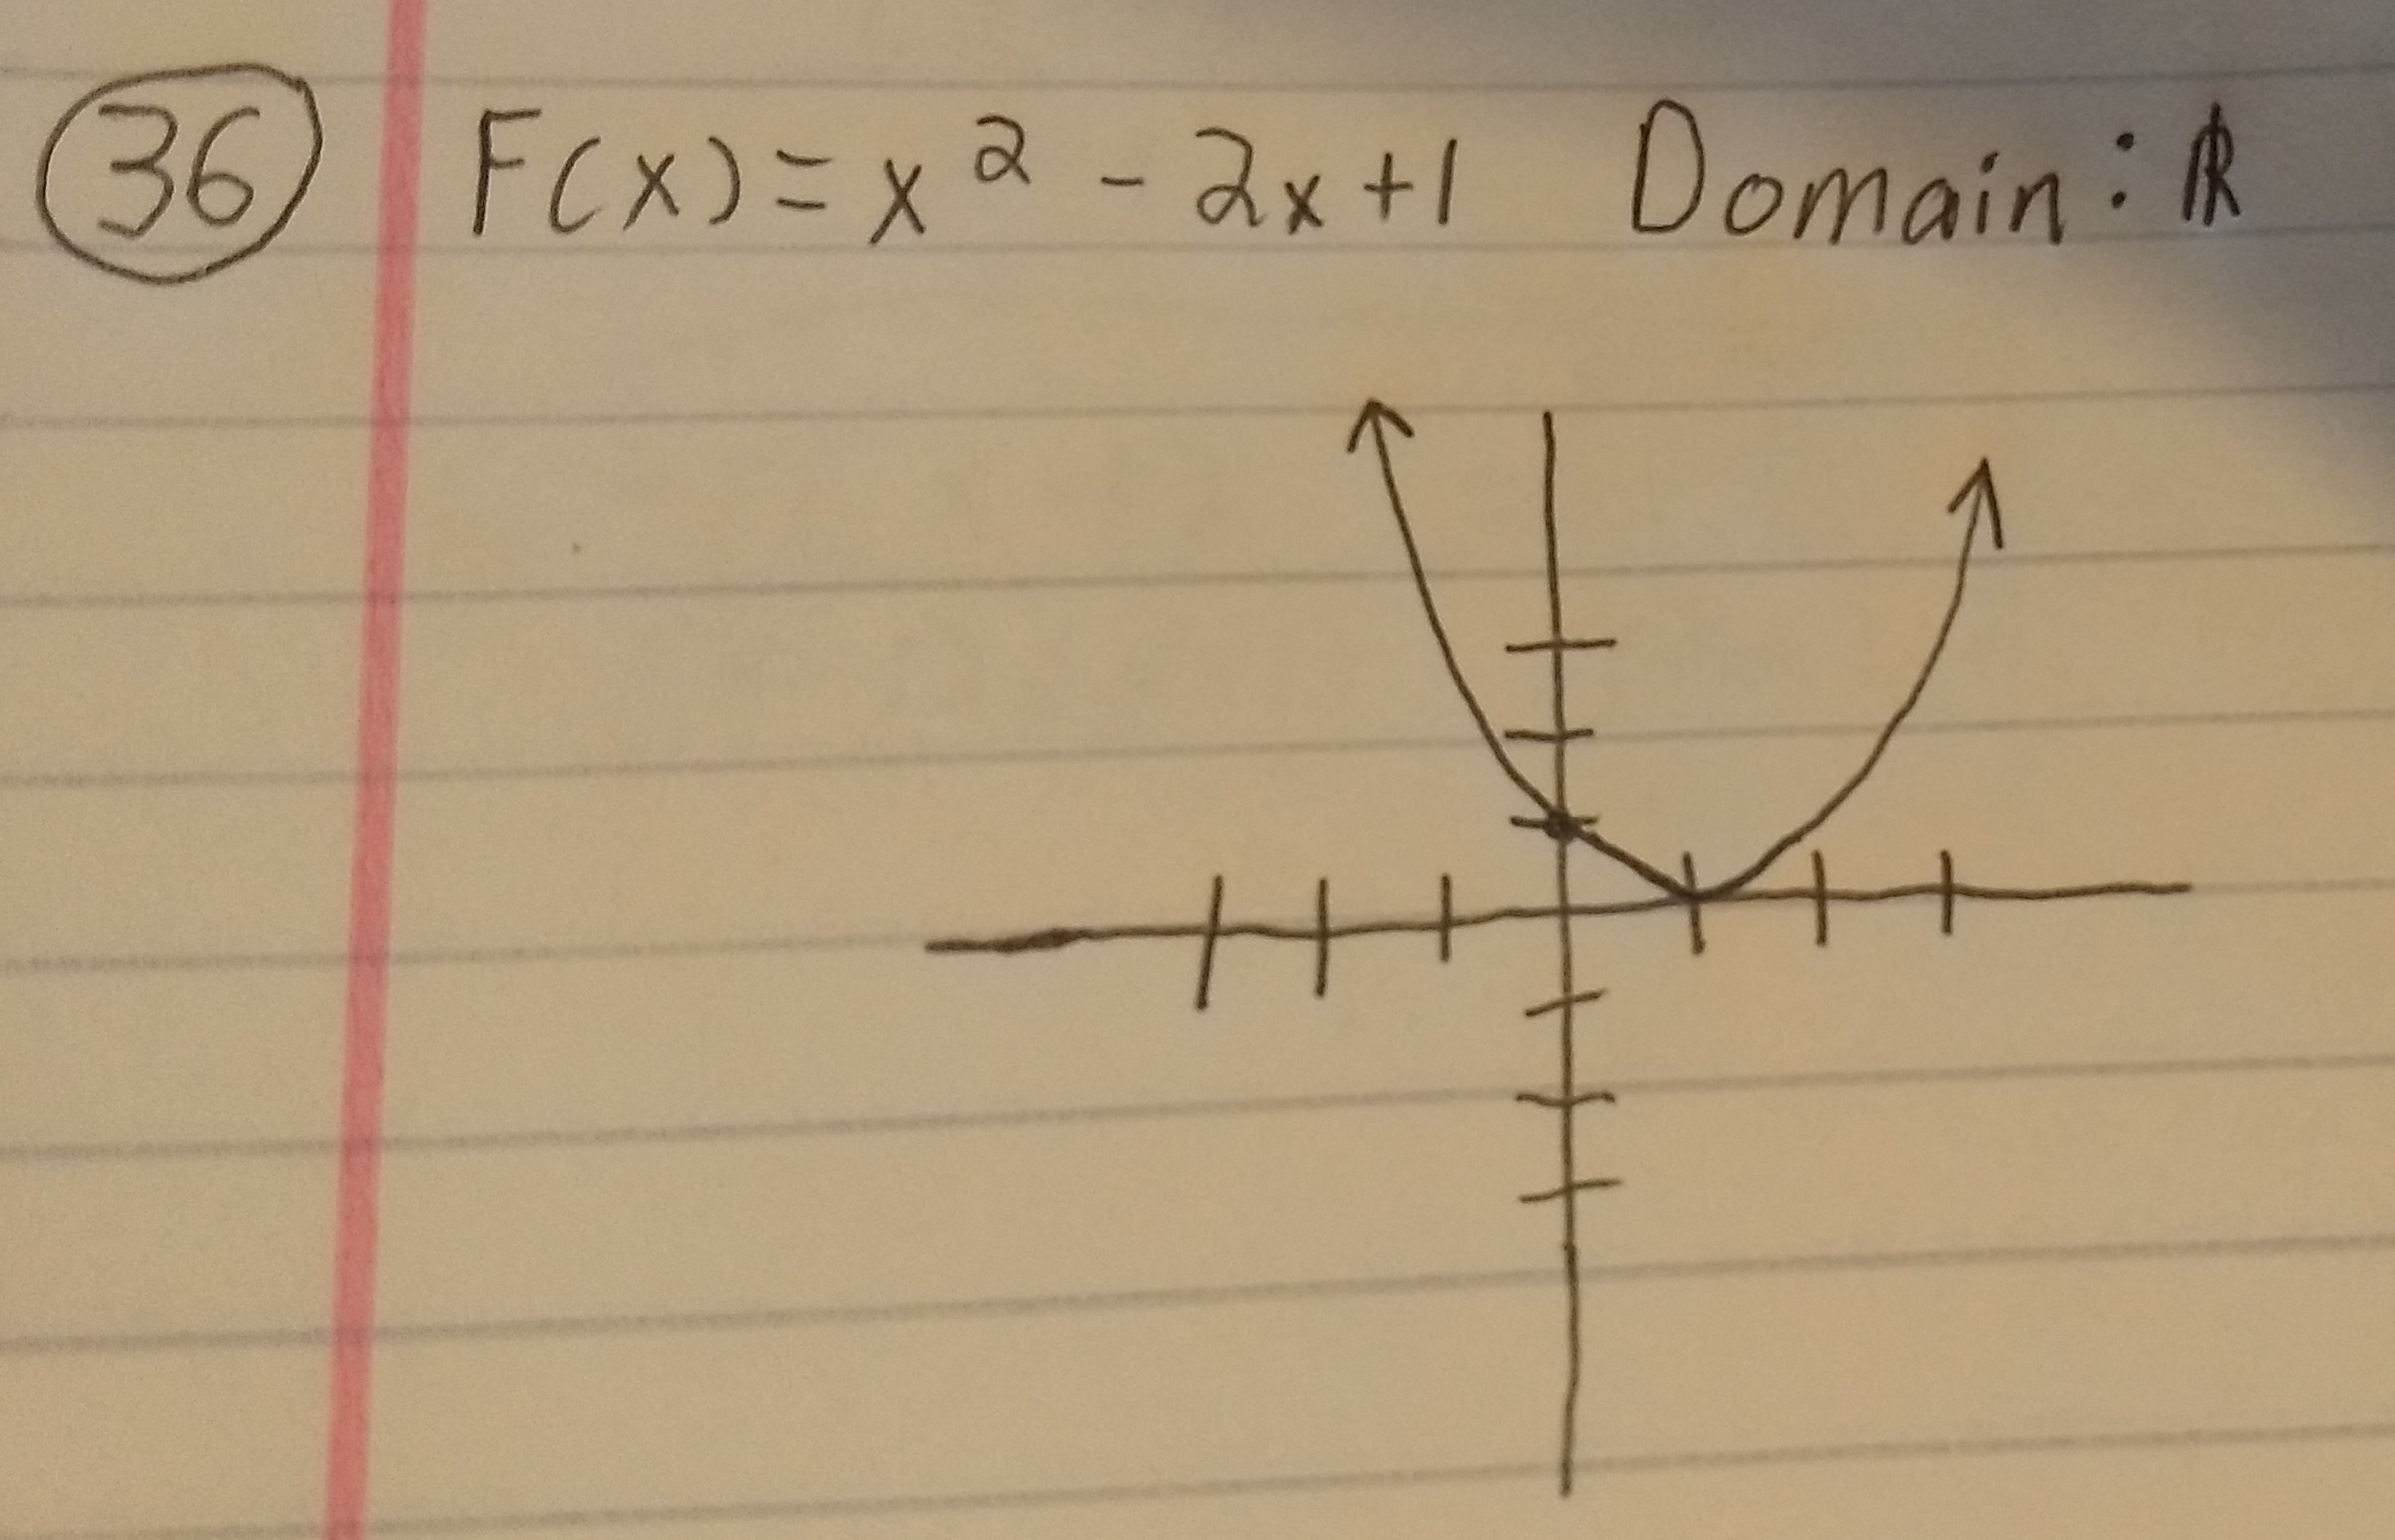 36 F(x) = x² - 2x + 1 Domain: ℝ